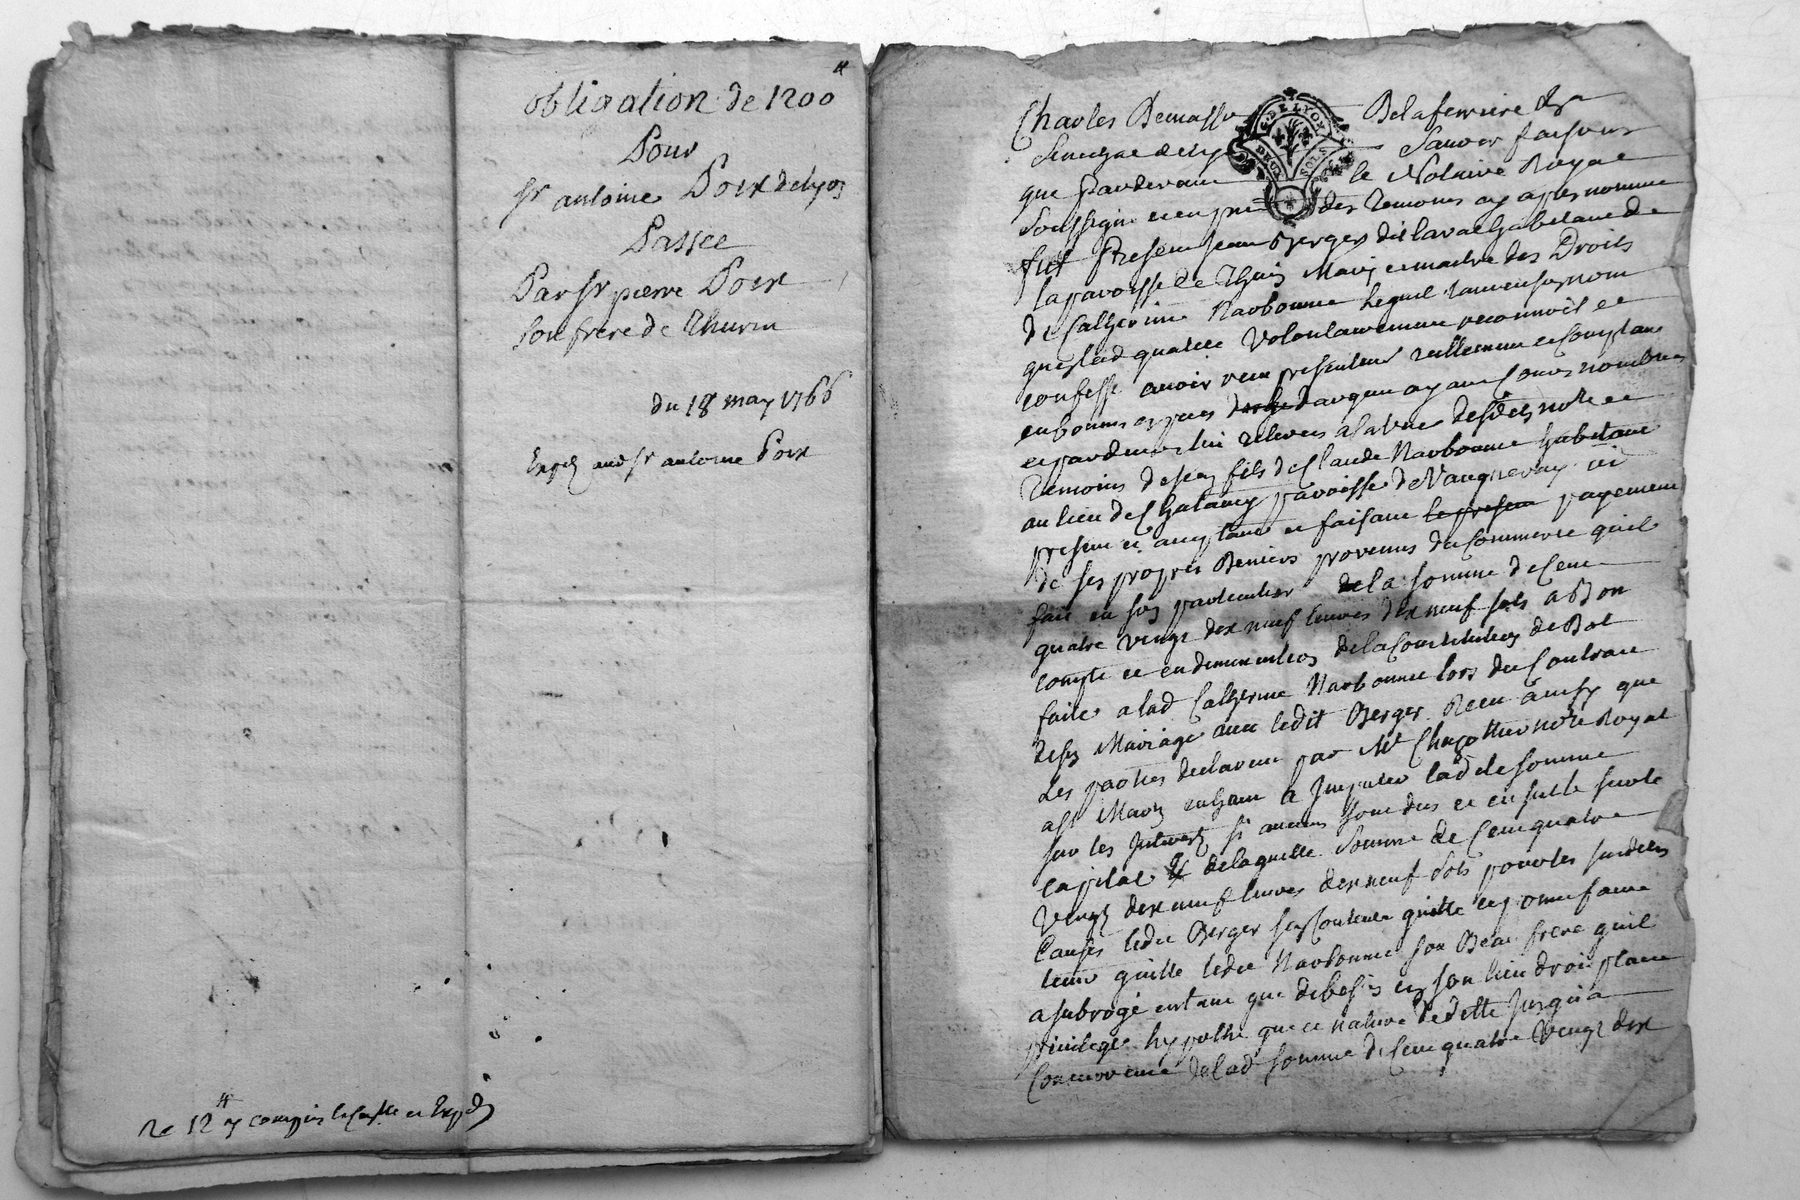 obligation de 1200 ₶
Pour
Sr antoine Poix de lyon
Passée
Par Sr pierre Poix
Son frere de Thurin
du 18 may 1766
Expedº aud Sr antoine Poix
Re 12 ₶ y compris le Expedº
Charles Demasso De la ferriere &r
Senechal de Lyon Scavoir faisons
que Pardevant le Notaire Royal
Soussigné et en pnce des Temoins cy apres nommés
fut Present Jean Berger dit laval habitant de
la paroisse de Thurin Mary et maitre des Droits
de Catherine Narbonne Lequel tant en son nom
quesd qualité Volontairement reconnoit et
confesse avoir reçu presentement reellement et Comptant
en bonnes especes d'argent ayant Cours nombrées
et pardevers lui retirées a la vue desdits notre et
Temoins de fils de Claude Narbonne habitant
au lieu de paroisse de Vaugneray ici
present et acceptant et faisant le present payement
de ses propres Deniers provenus du Commerce quil
fait en son particulier de la somme de Cent
quatre vingt dix neuf livres dix neuf sols a Bon
compte et en diminution de la Constitution de Dot
faite a lad Catherine Narbonne lors du Contrat
de son Mariage avec ledit Berger Recu ainsy que
Les parties declarent par Me notre Royal
a Imputer lad somme
sur les Interets si aucuns sont dus et ensuite sur le
capital de laquelle Somme de Cent quatre
Vingt dix neuf livres dix neuf sols pour les susdites
Causes ledit Berger sen Contente quitte et promet faire
tenir quitte ledit Narbonne son Beau frere quil
a subrogé entant que de besoin en son lieu droit place
privilege hypotheque et nature de dette Jusqu'a
Concurrence de lad somme de Cent quatre Vingt dix
DE LYON
DEUX SOLS